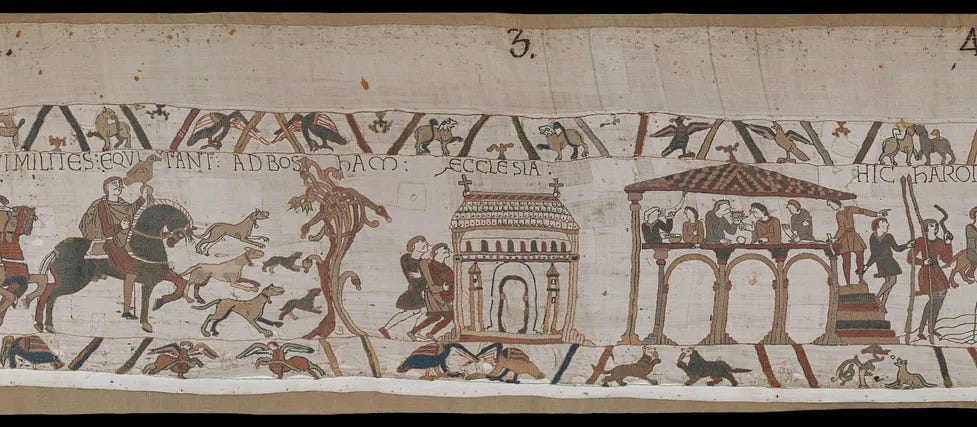 3. 4
I MILITES : EQVITANT : AD BOSHAM : ECCLESIA : HIC HAROL